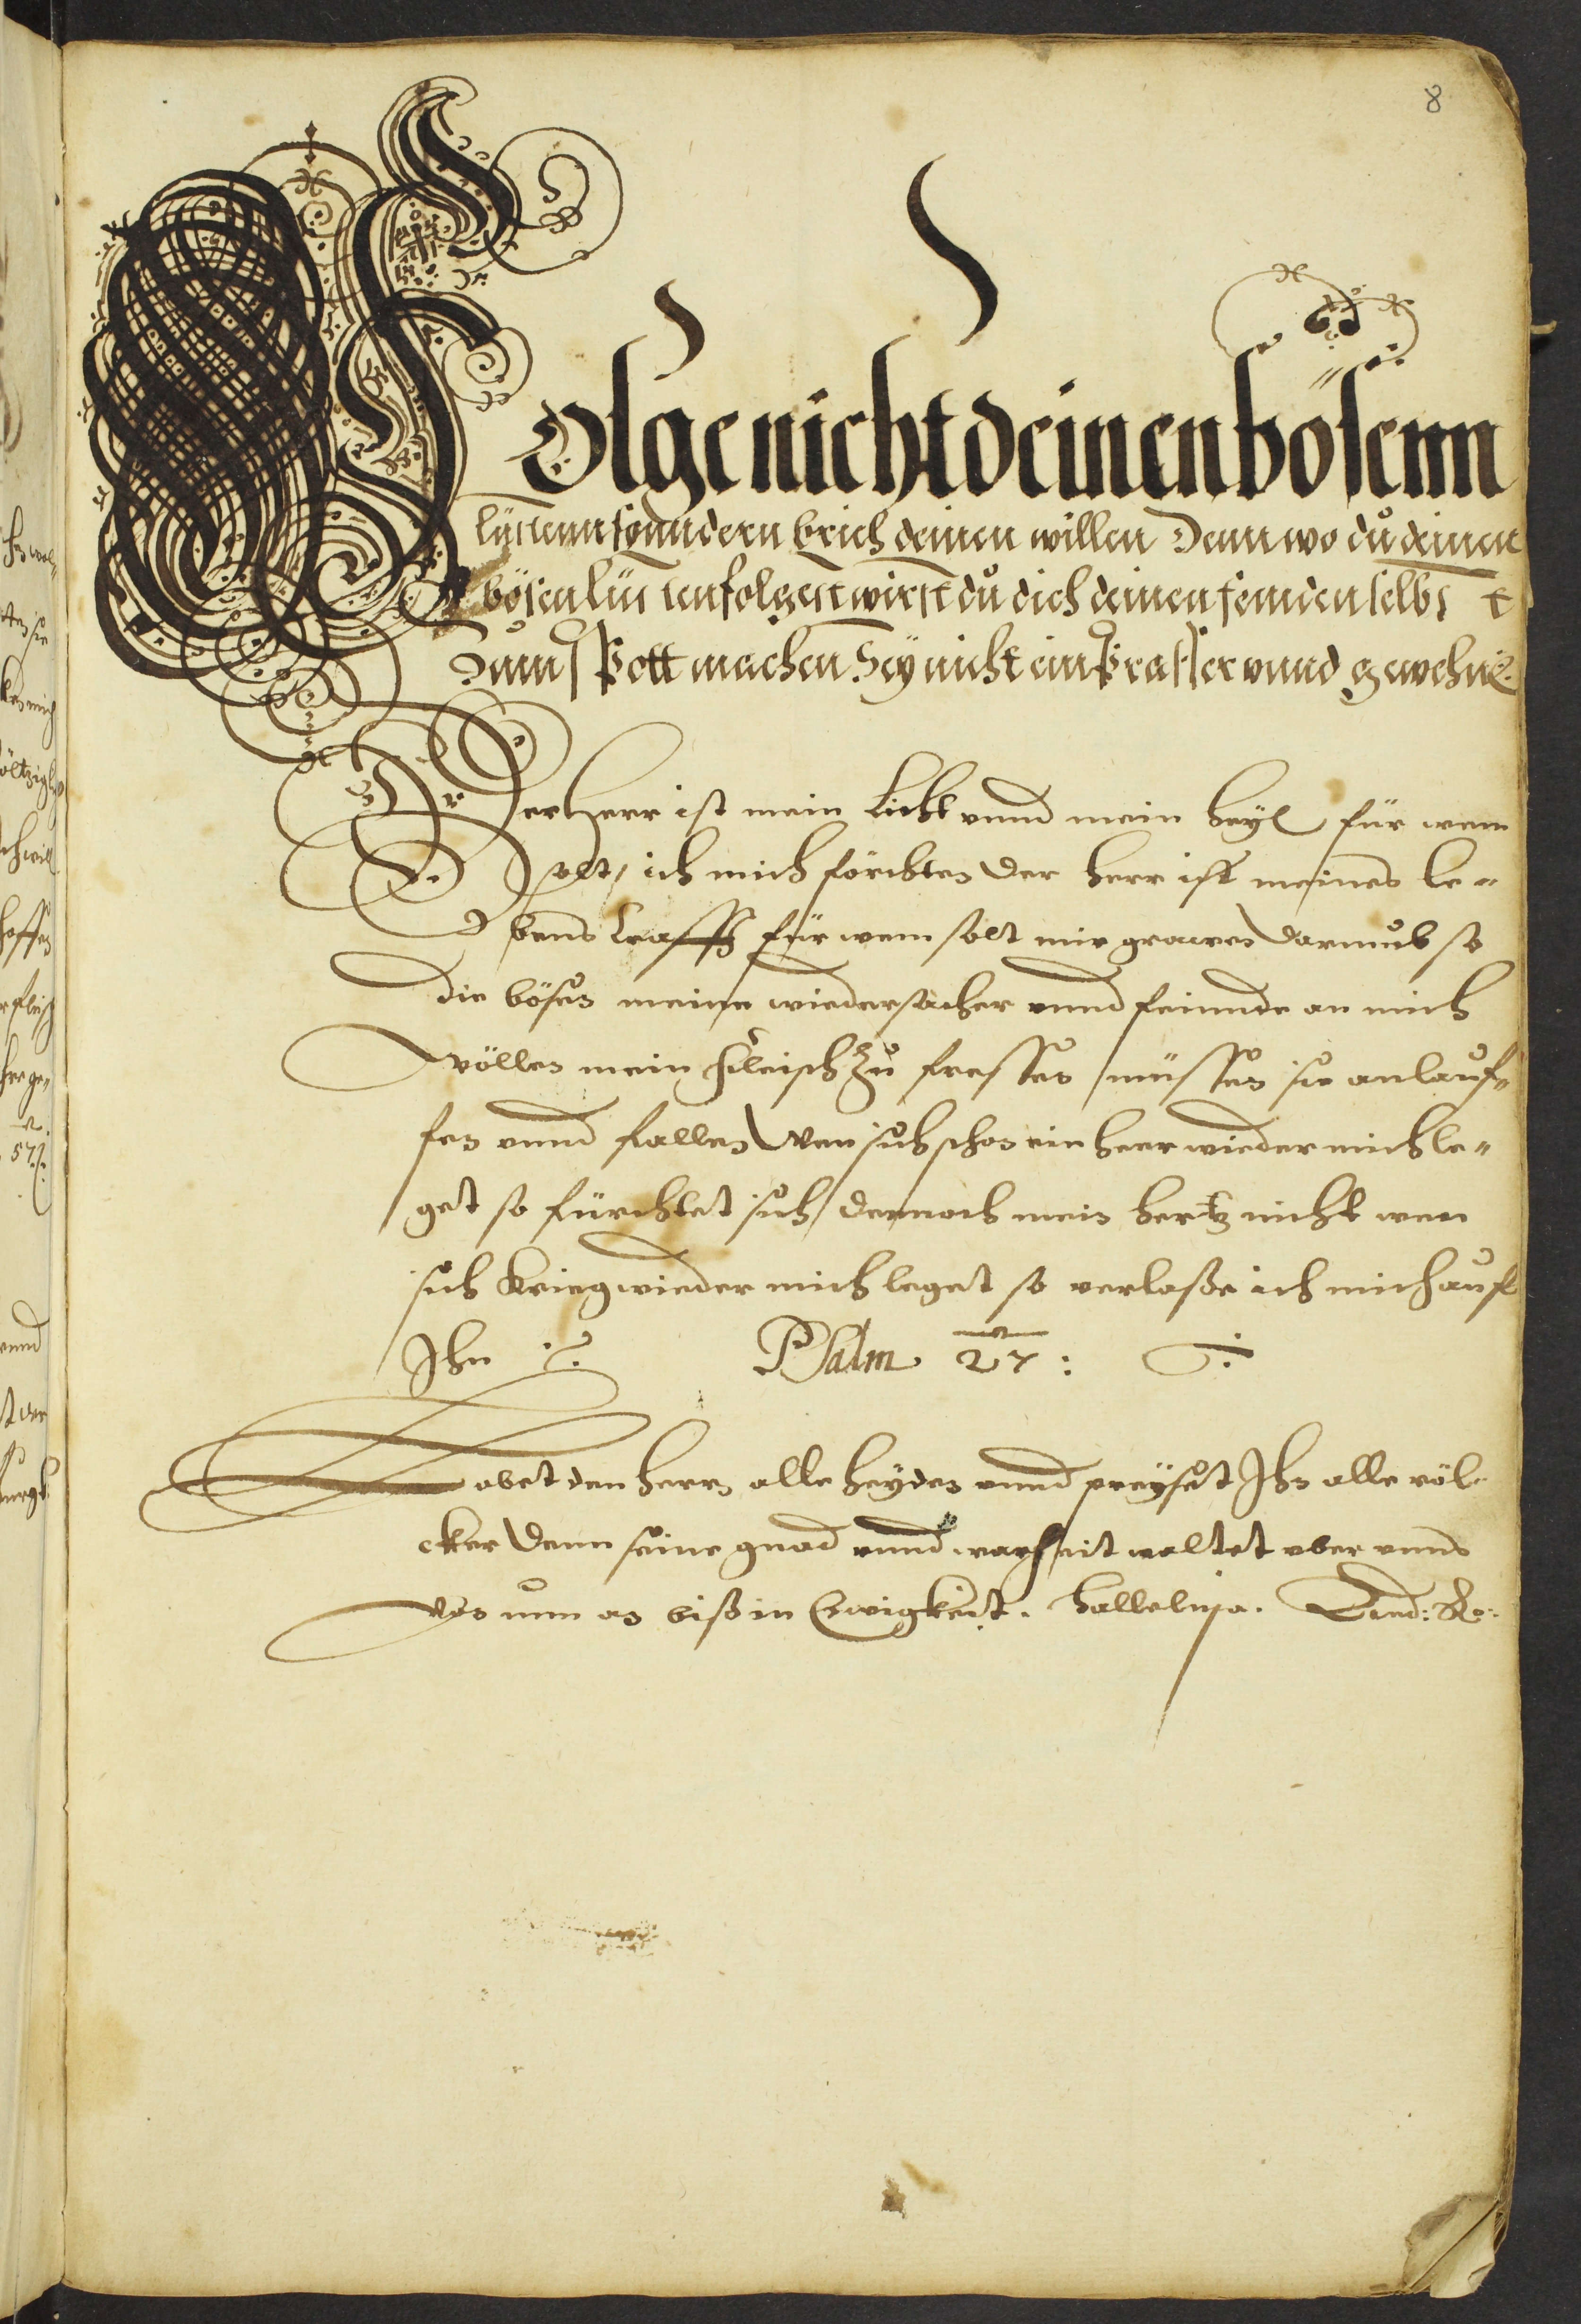 8
Folge nicht deinen bösenn
lüstenn sonndern brich deinen willen Dann wo du deinen
bösen lüsten folgest wirst du dich deinen feinden selbst
Zum spott machen Sey nicht ein prasser vnnd gewehne
Der Herr ist mein Licht vnnd mein heyl für wem
solt ich mich förchten der herr ist meines le=
bens krafft für wem solt mir grawen darumb so
die bösen meine wiedersacher vnnd feinnde an mich
wöllen mein fleisch zu fressen müssen sie anlauf=
fen vnnd fallen Wen sich schon ein heer wieder mich le=
get so fürchtet sich dennoch mein hertz nicht wen
sich krieg wieder mich leget so verlaße ich mich auf
Ihn Psalm 27:
Lobet den herrn alle heyden vnnd preyset Ihn alle völ=
cker Denn seine gnad vnnd warheit waltet vber vnns
Von nun an biß in Ewigkeit. Halleluja.